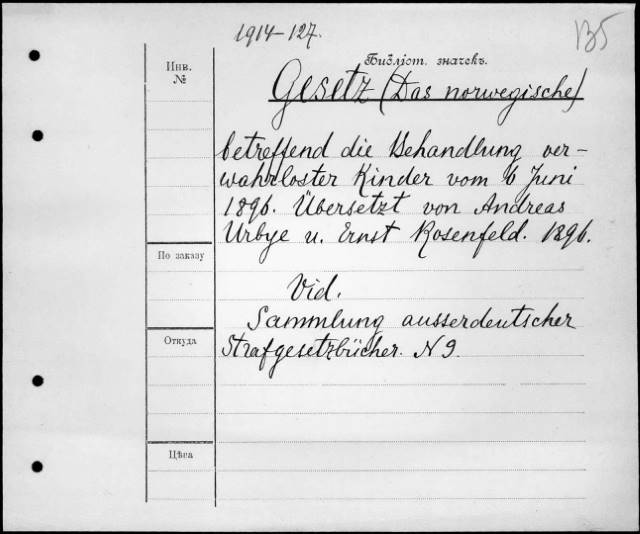 1914-127.
B5
Библіот. значекъ.
Инв.
№
Gesetz (Das norwegische)
betreffend die Behandlung ver-
wahrloster Kinder vom 6 Juni
1896. Übersetzt von Andreas
Urbye u. Ernst Rosenfeld. 1896.
По заказу
Vid.
Sammlung ausserdeutscher
Откуда
Strafgesetzbücher. N 9.
Цѣна